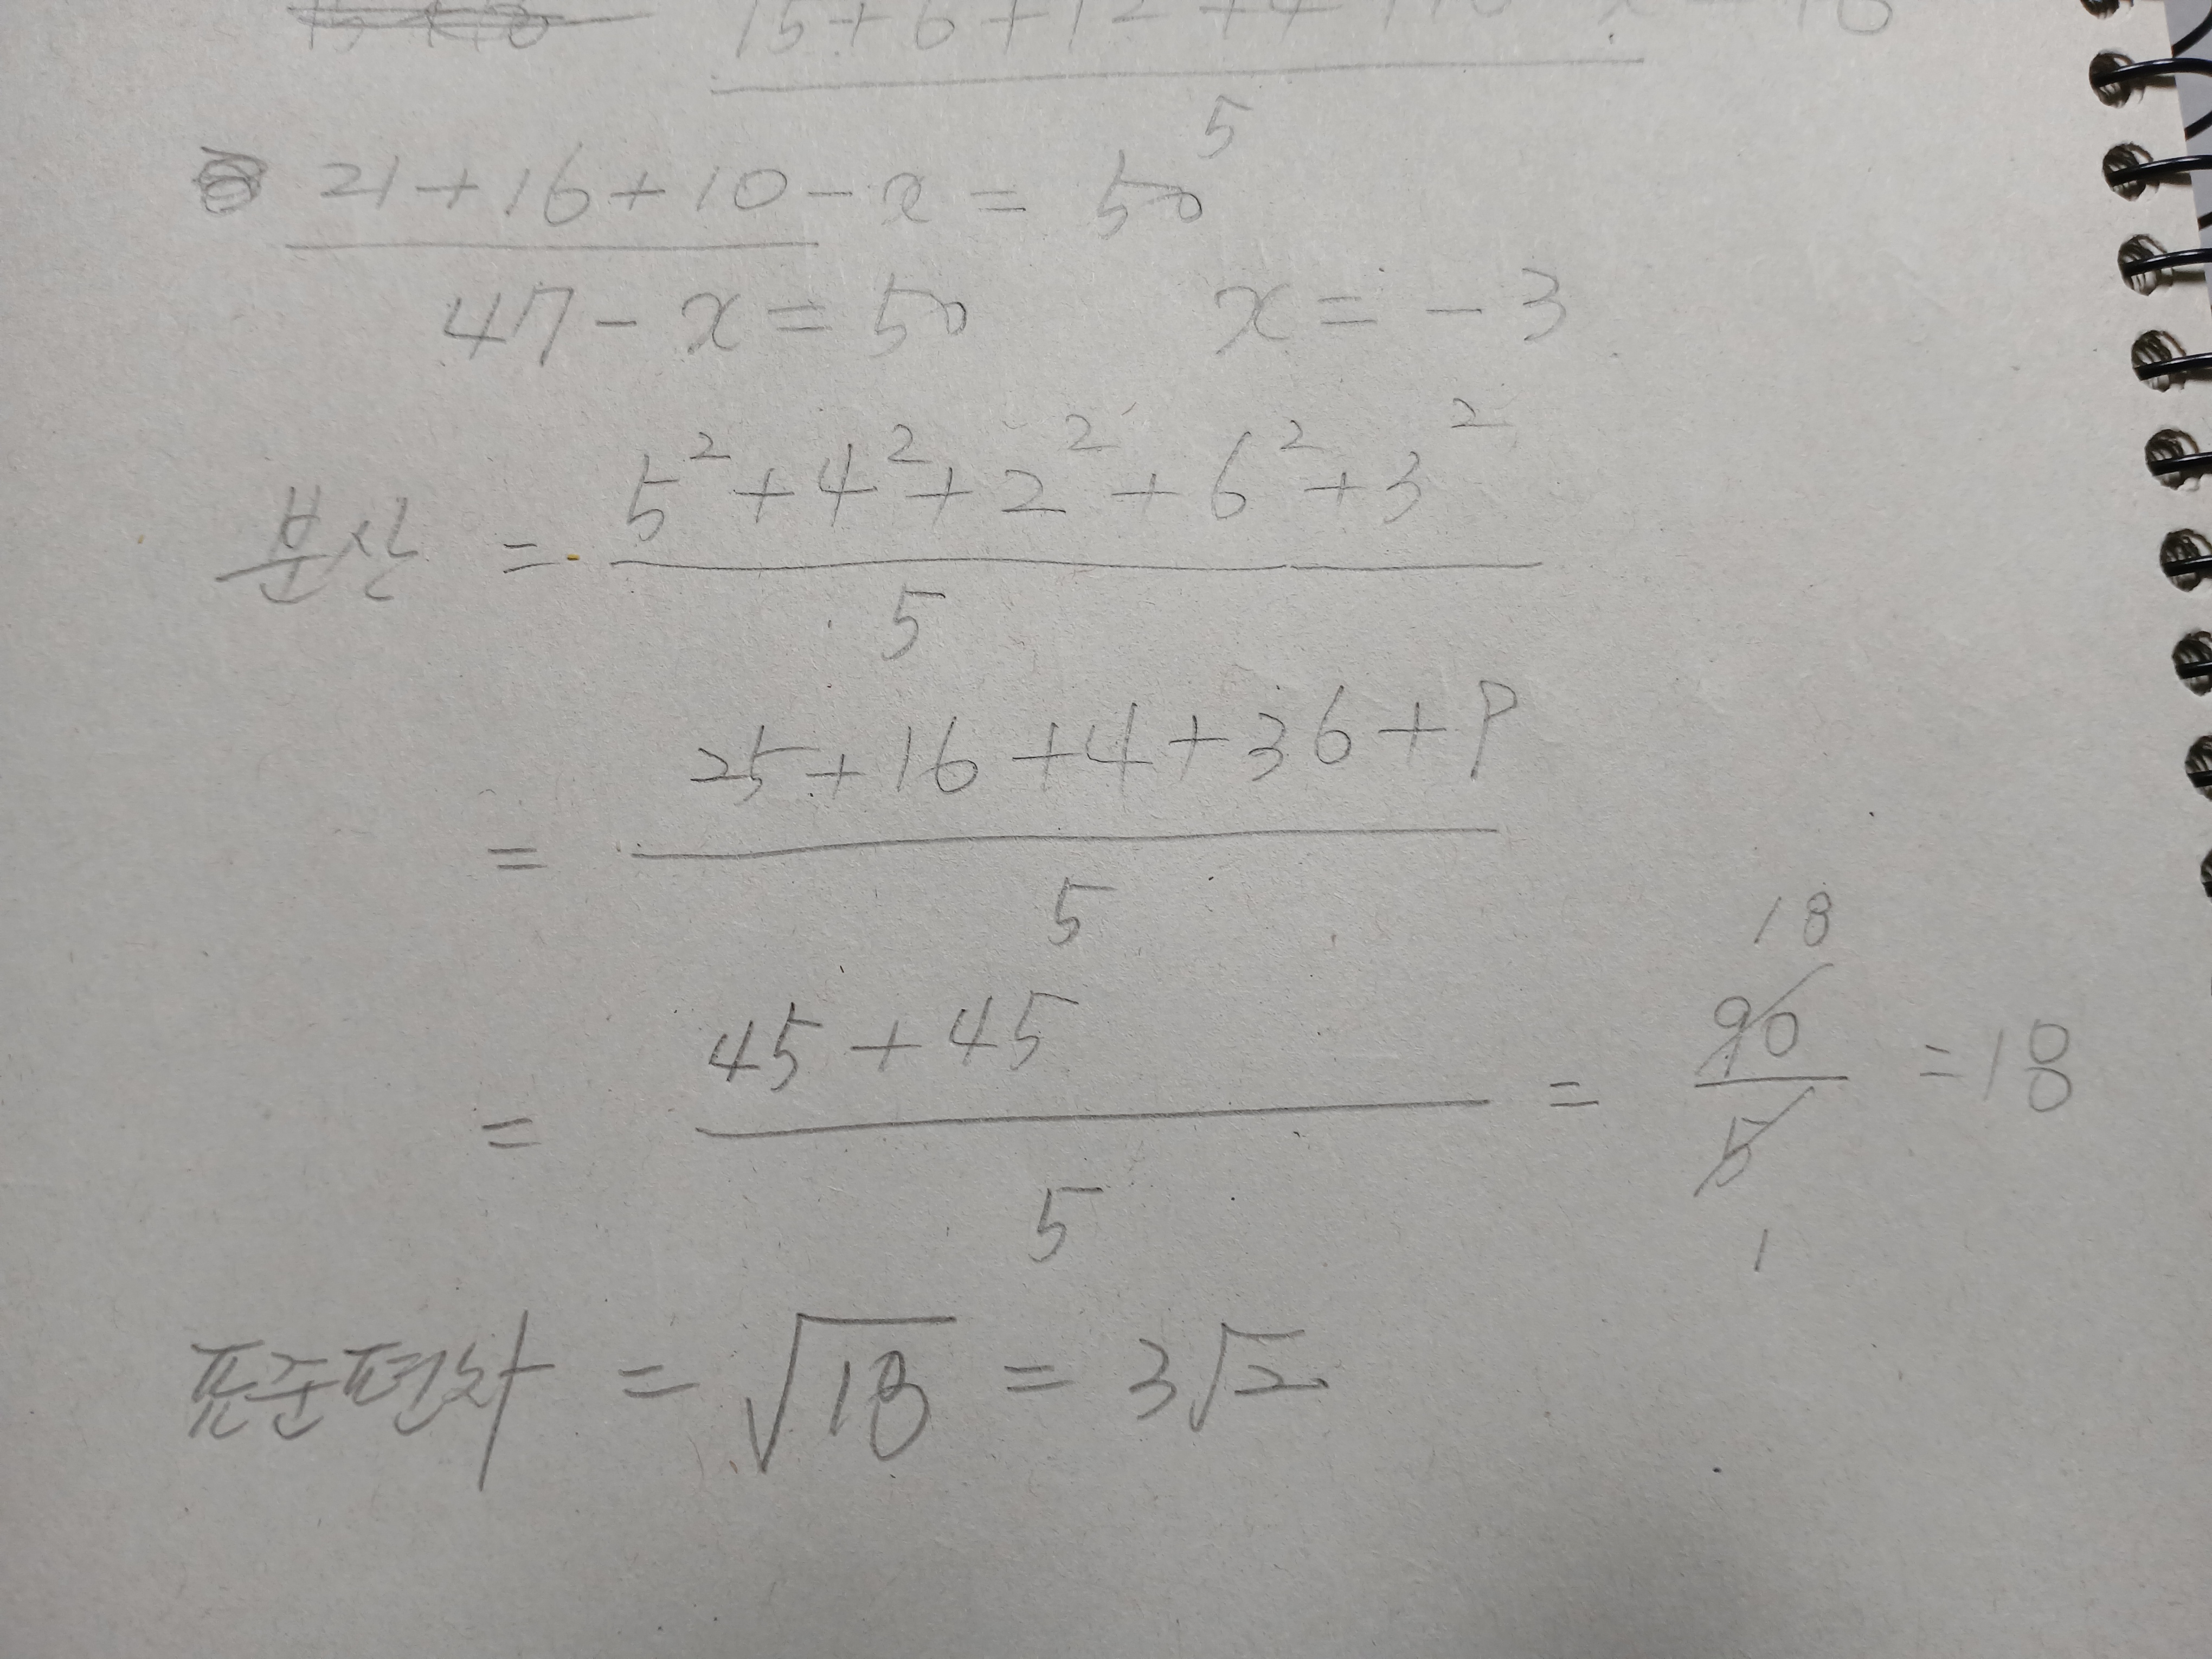 15+6+12+4+10-x = 10
5
21+16+10-x = 50
47-x=50 x=-3
분산 = 5²+4²+2²+6²+3²
5
= 25+16+4+36+9
5
= 45+45 = 90 =18
5 5
18
1
표준편차 = √18 = 3√2